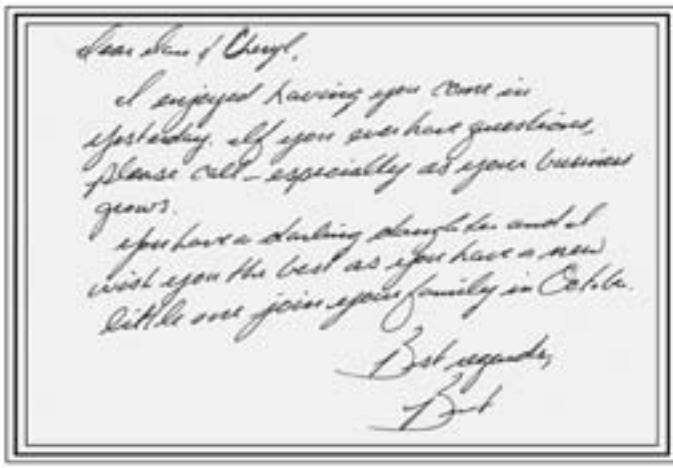 Dear Dave & Cheryl,
I enjoyed having you come in
yesterday. If you ever have questions,
please call - especially as your business
grows.
You have a darling daughter and I
wish you the best as you have a new
little one join your family in October.
Best regards,